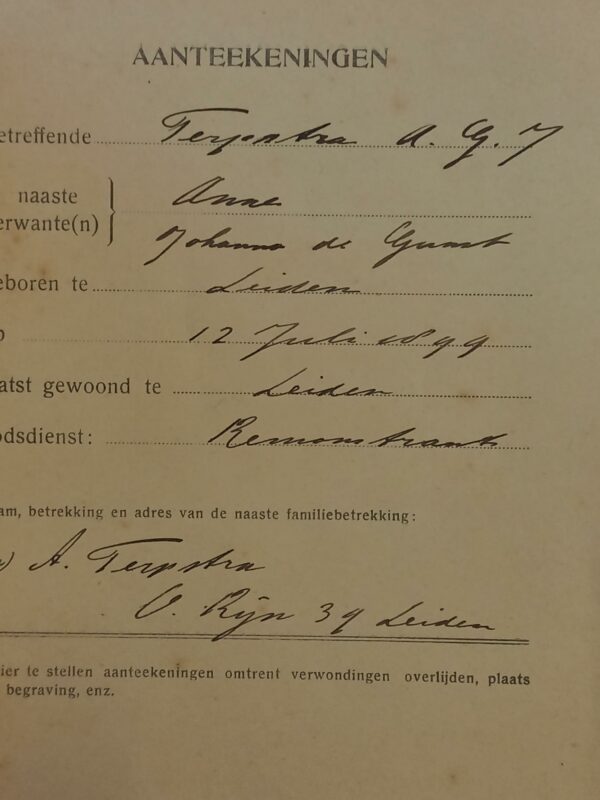 AANTEEKENINGEN
etreffende Terpstra A. G. J
naaste Anna
erwante(n) Johanna de Gunst
eboren te Leiden
12 Juli 1899
atst gewoond te Leiden
dsdienst: Remonstrants
am, betrekking en adres van de naaste familiebetrekking:
A. Terpstra
O. Rijn 39 Leiden
ier te stellen aanteekeningen omtrent verwondingen overlijden, plaats
begraving, enz.